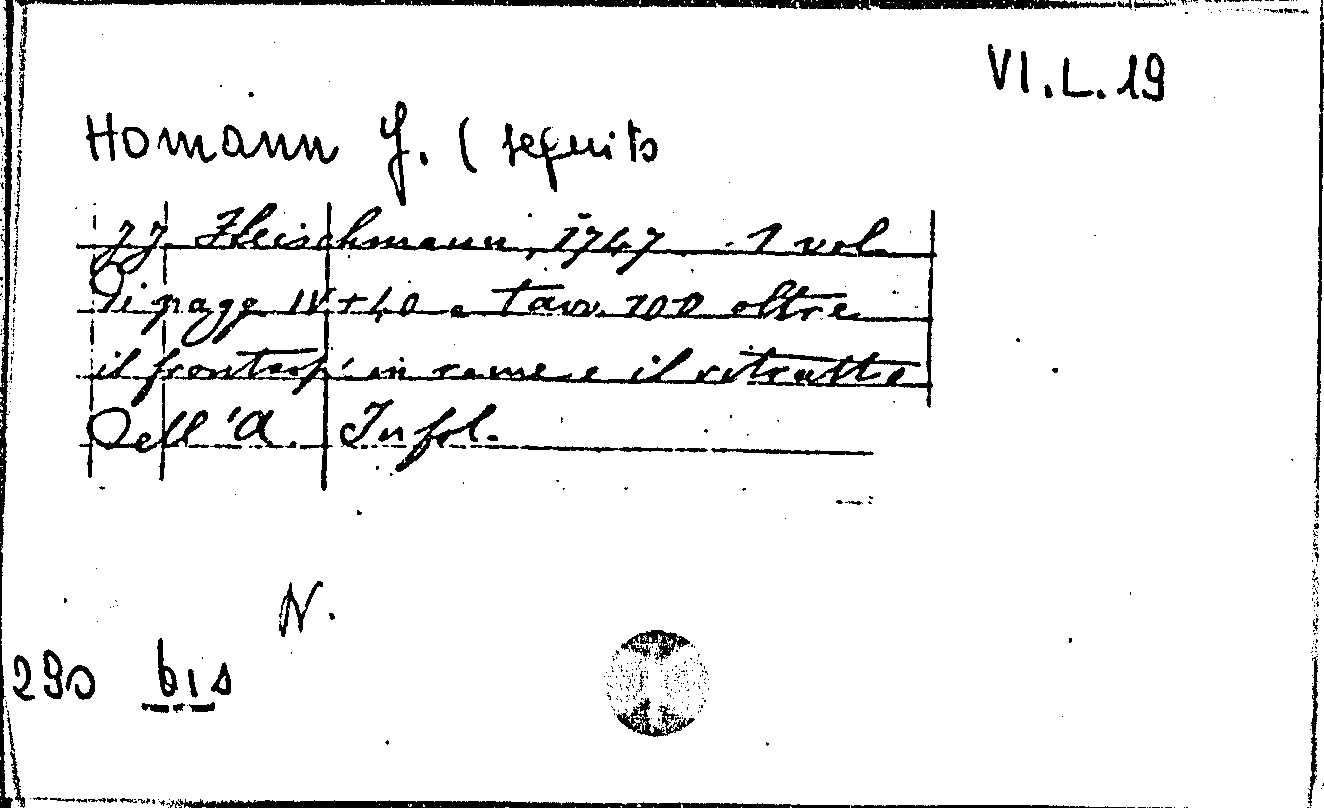 VI.L.19
Homann J. (seguito
J.J. Fleischmann, 1747 - 1 vol.
di pagg. IV+40 e tavv. 100 oltre
il frontesp. in rame e il ritratto
dell'A. In fol.
N.
290 bis